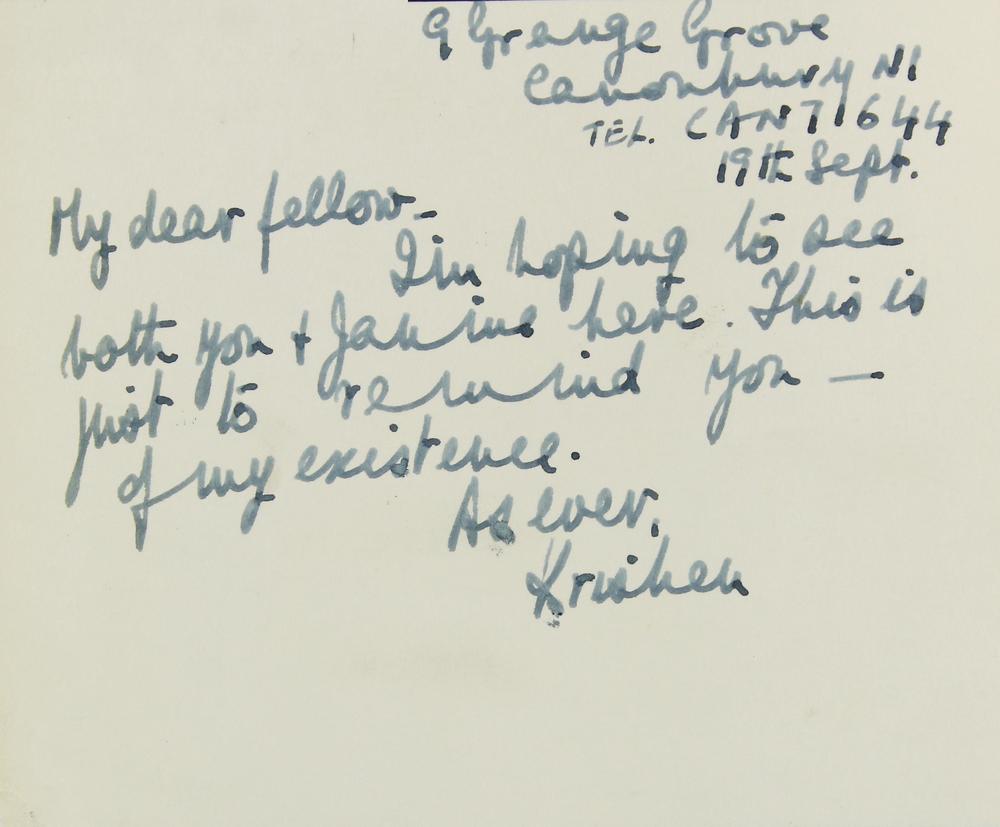 9 Grange Grove
Canonbury N1
TEL. CAN 71644
19th Sept.
My dear fellow -
I'm hoping to see
both you + Janine here. This is
just to remind you —
of my existence.
As ever,
Krishen